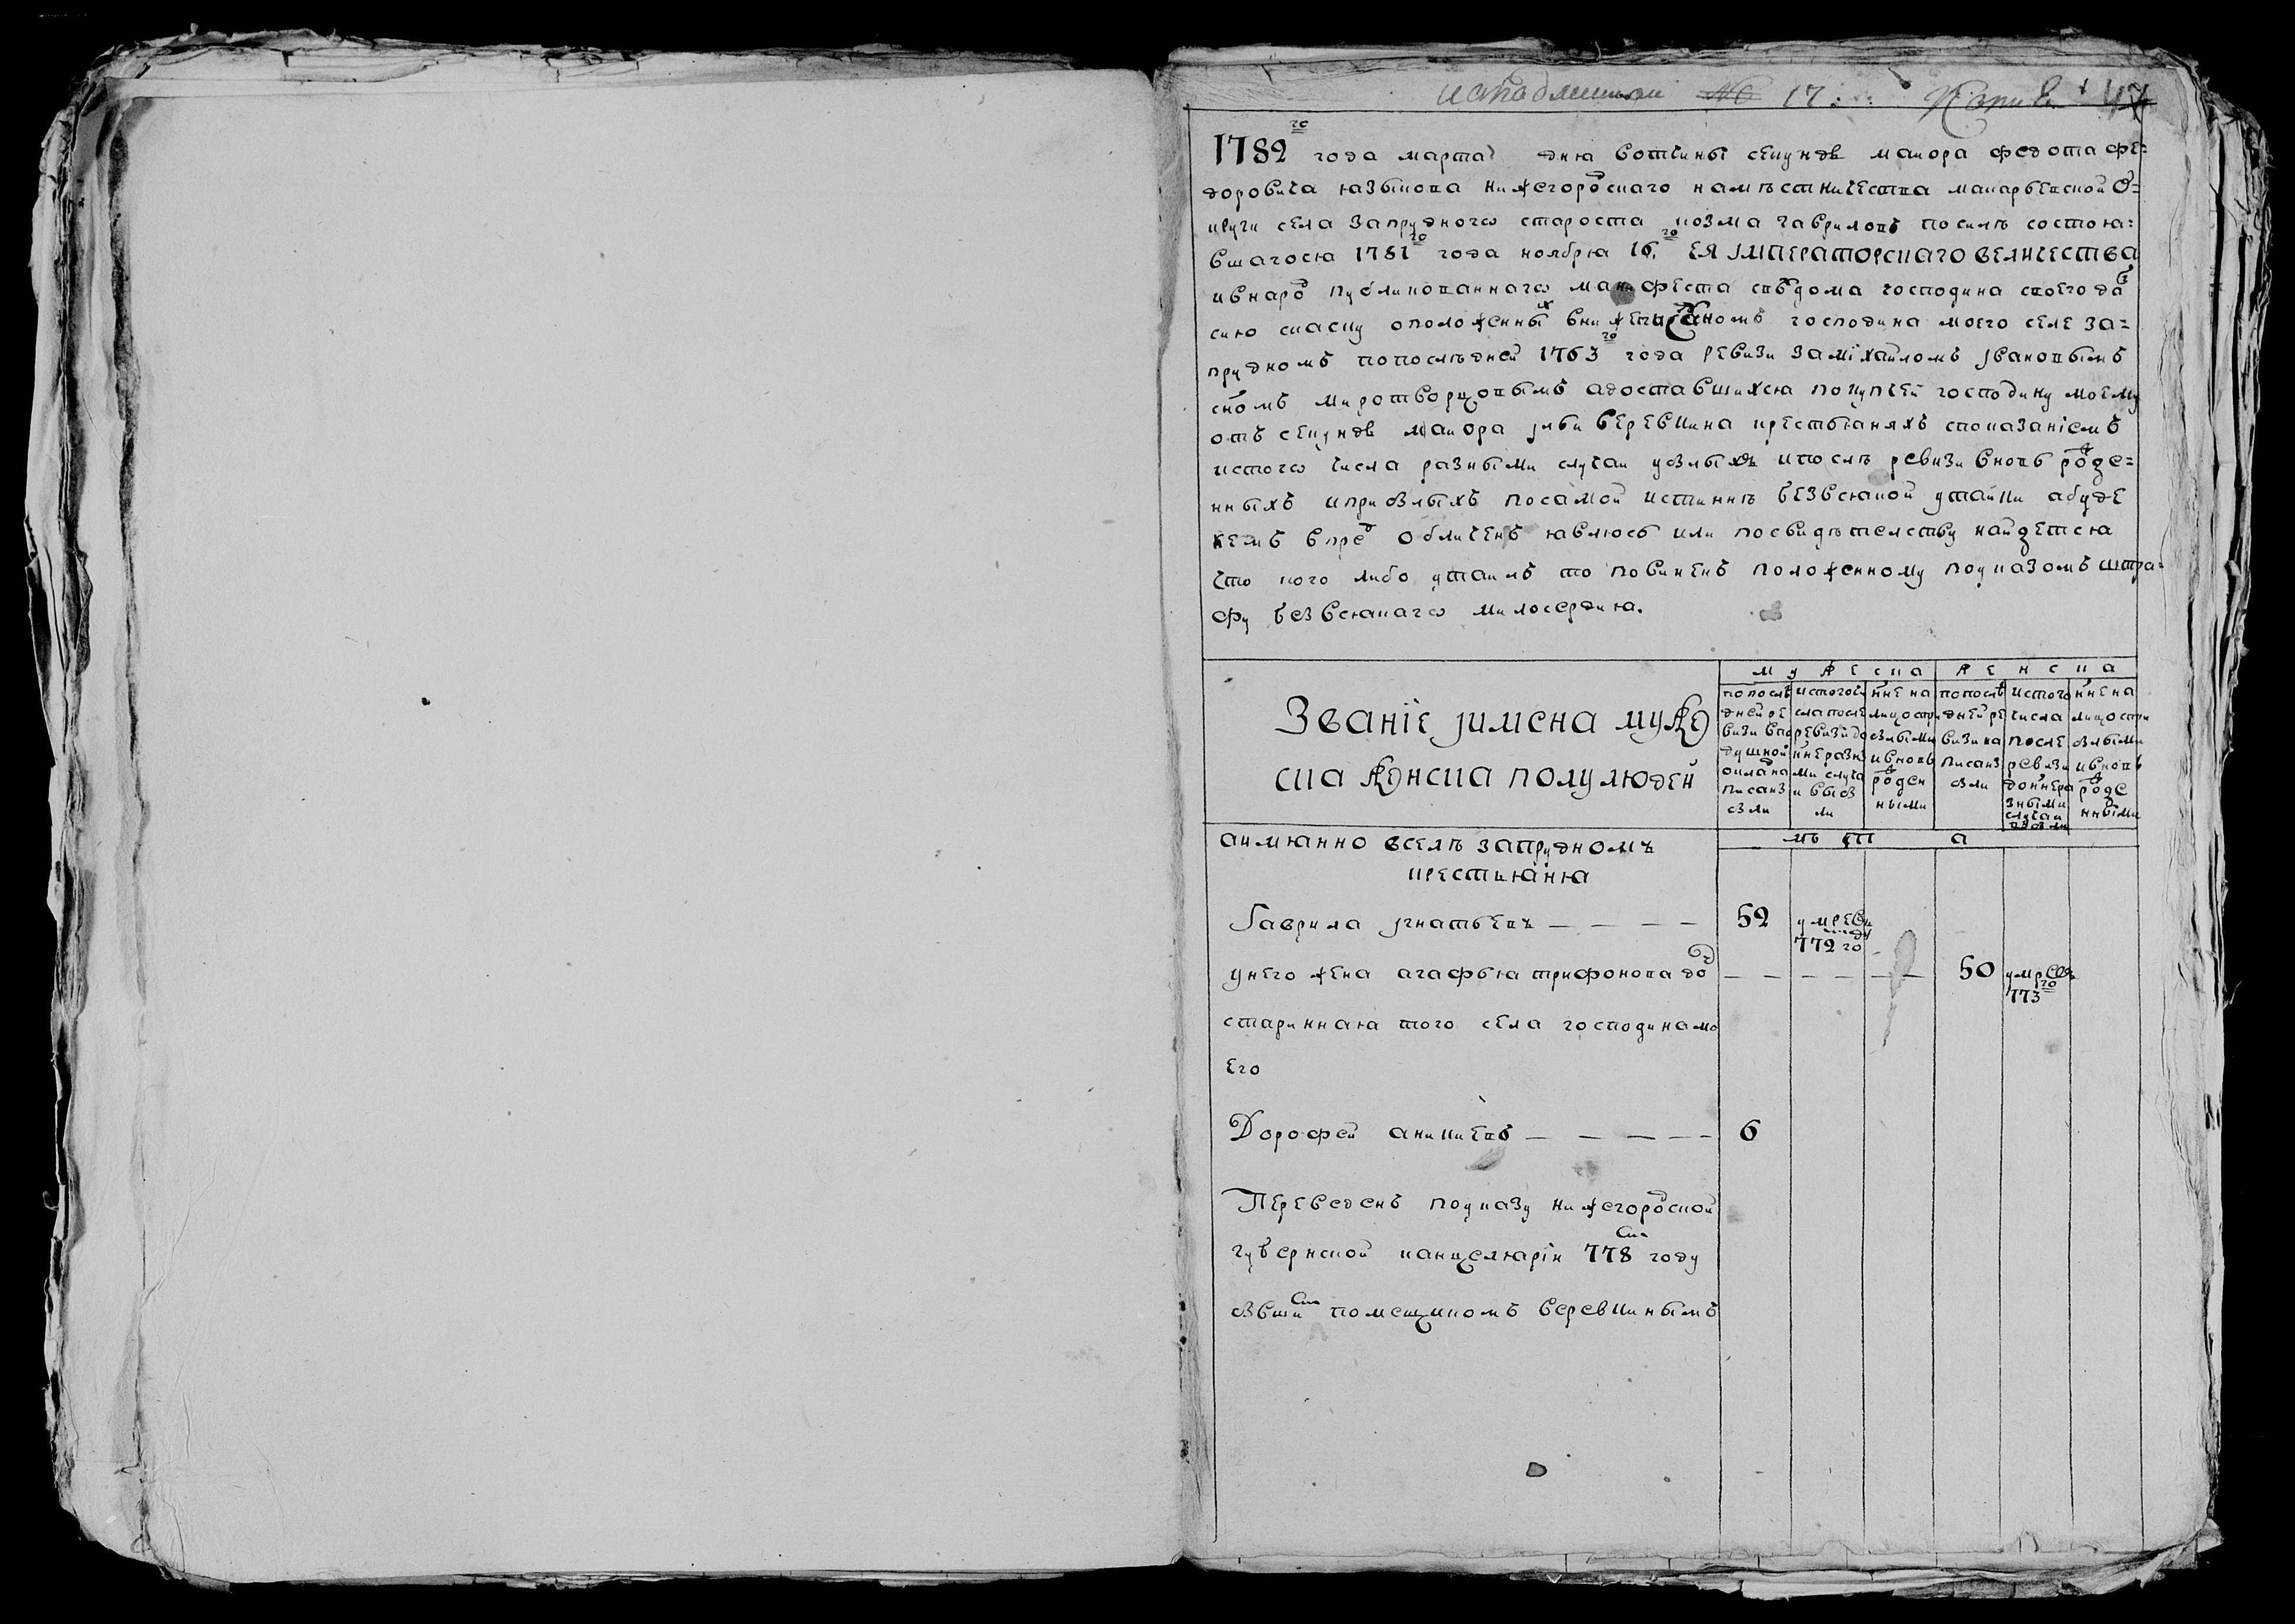 17
1782го года марта дня вотчины секундъ маиора федота фе=
доровича казыкова нижегородскаго наместничества макарьевской о=
круги села запруднаго староста козма гавриловъ посиле состоя=
вшагося 1781го года ноября 16го ЕЯ ІМПЕРАТОРСКАГО ВЕЛИЧЕСТВА
ивнарод публикованнаго манифеста сведома господина своего дав
сию скаску оположенных господина моего селе за=
прудномъ попоследней 1763го года ревизи заміхайломъ ивановымъ
сномъ миротворцовымъ адоставшихся покупкей господину моему
отъ секундъ маиора веревкина крестьянахъ спсказаніемъ
истого числа разными случаи убылыхъ ипосле ревизи вновь рожде=
нныхъ иприбылыхъ посамой истинне безвсякой утайки абуде
кемъ впред обличенъ явлюсь или посвидетелству найдется
что кого либо утаилъ то повиненъ положенному поуказомъ штра=
фу безвсякаго милосердия.
Званіе іимена муже
ска женска полу людей
мужеска женска
попосле
дней ре
визи в
душной
оклад на
писанз
были
истогочи
сла после
ревизи до
нне разны
ми случа
и выбы
ли
нне на
лицо спри
былыми
ивновь
рожден
ными
попосле
дней ре
визи на
писанз
были
истого
числа
после
ревизи
донне ра
зными
случаи
нне на
лицо спри
былыми
ивновь
рожде
нными
лѣта
аимянно вселе запрудномъ
крестьяня
Гаврила ігнатьевъ — — — — 52 умре въ
772 году
унего жена агафья трифонова дочь — — — — 50 умре въ
773го
стариннаю того села господинамо
его
Дорофей аникиевъ — — — — 6
Переведенъ поуказу нижегородской
губернской канцелярін 778 году
бывшим помещикомъ веревкинымъ